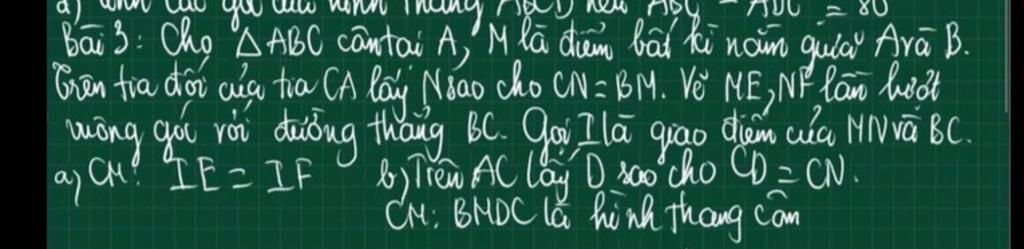 a) Tính các góc của hình thang ABCD nếu ABC - ADC = 80
Bài 3: Cho △ABC cân tại A, M là điểm bất kì nằm giữa A và B.
Trên tia đối của tia CA lấy N sao cho CN = BM. Vẽ ME, NF lần lượt
vuông góc với đường thẳng BC. Gọi I là giao điểm của MN và BC.
a) CM: IE = IF b) Trên AC lấy D sao cho CD = CN.
CM: BMDC là hình thang cân